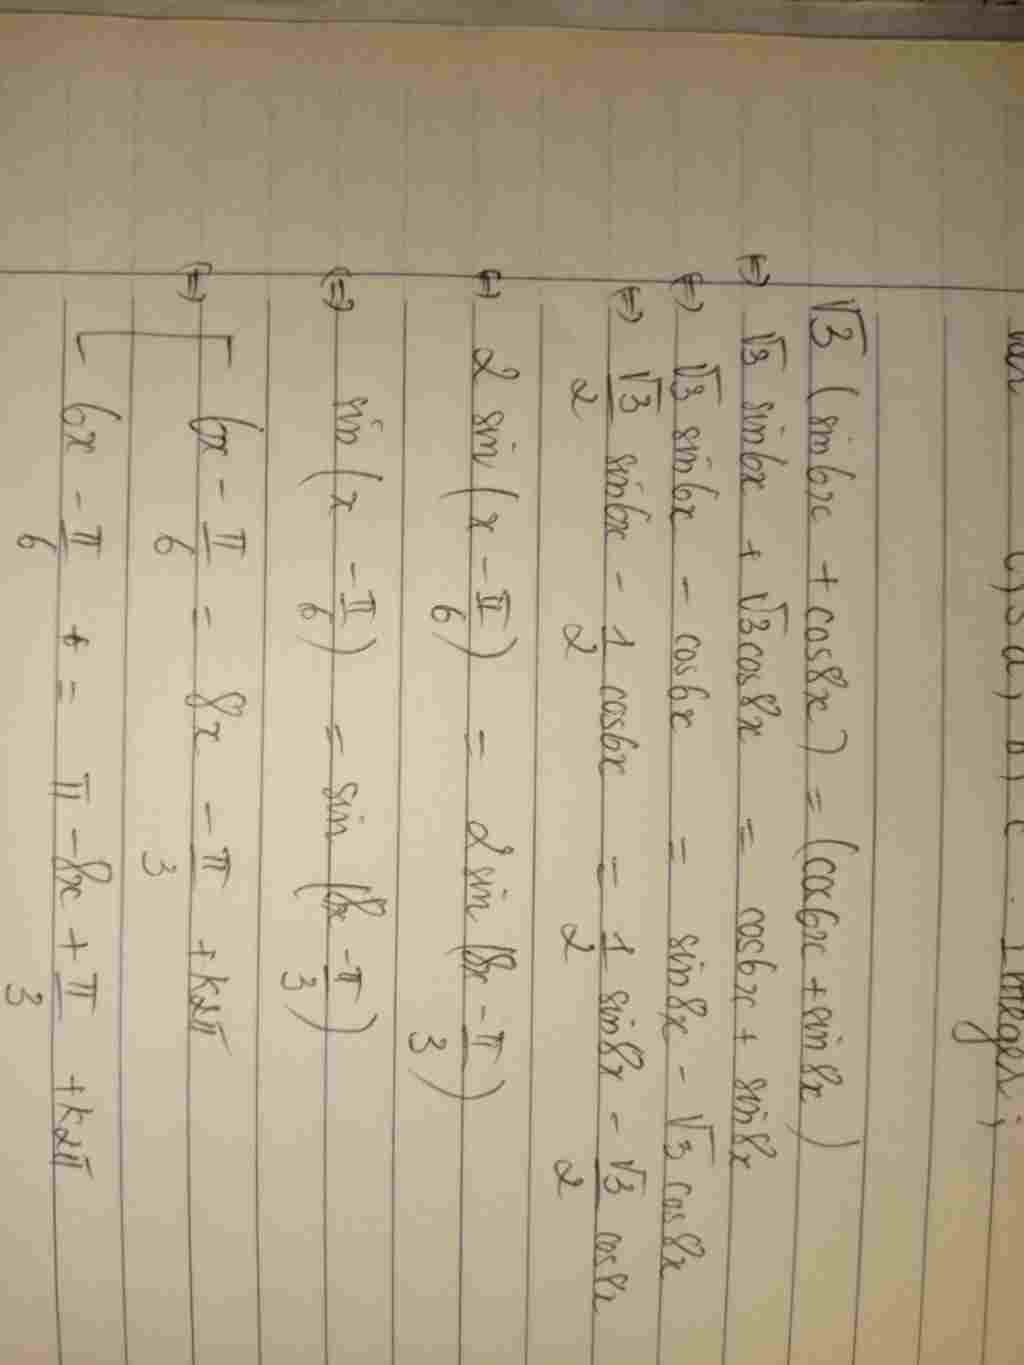 c) 3 a, b, c. Imeges:,
√3 (sin6x + cos8x) = (cos6x + sin8x)
⇔ √3 sin6x + √3cos8x = cos6x + sin8x
⇔ √3 sin6x - cos6x = sin8x - √3 cos8x
⇔ √3/2 sin6x - 1/2 cos6x = 1/2 sin8x - √3/2 cos8x
⇔ 2 sin (x - π/6) = 2 sin (8x - π/3)
⇔ sin (x - π/6) = sin (8x - π/3)
⇔ [ 6x - π/6 = 8x - π/3 + k2π
[ 6x - π/6 = π - 8x + π/3 + k2π